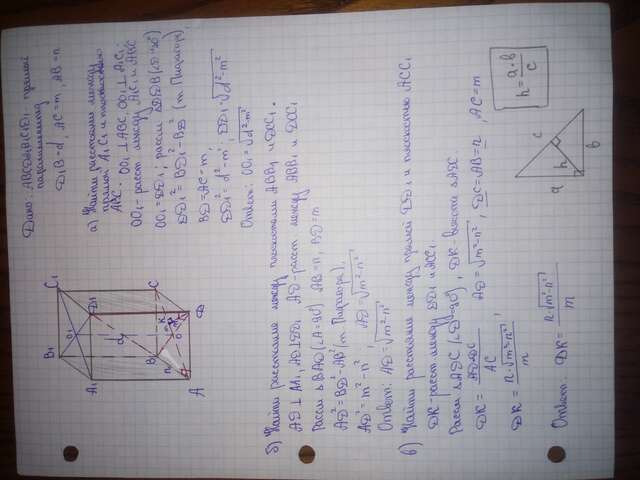 Дано: ABCDA₁B₁C₁D₁ - прямой
параллелепипед
D₁B = d, AC = m, AB = n
а) Найти расстояние между
прямой A₁C₁ и плоскостью
ABC. OO₁ ⊥ ABC, OO₁ ⊥ A₁C₁
OO₁ - расст между A₁C₁ и ABC
OO₁ = DD₁; рассм △D₁DB (∠D=90°)
DD₁² = BD₁² - BD² (т. Пифагора),
BD = AC = m;
DD₁² = d² - m²; DD₁ = √d² - m²
Ответ: OO₁ = √d² - m²
B₁
C₁
O₁
A₁
D₁
d
B
C
K
m
n
O
A
D
б) Найти расстояние между плоскостями ABB₁ и DCC₁.
AD ⊥ AA₁, AD ⊥ DD₁ AD - расст между ABB₁ и DCC₁
Рассм △BAD (∠A=90°) AB = n, BD = m
AD² = BD² - AB² (т. Пифагора),
AD² = m² - n²; AD = √m² - n²
Ответ: AD = √m² - n²
в) Найти расстояние между прямой DD₁ и плоскостью ACC₁
DK - расст между DD₁ и ACC₁
Рассм △ADC (∠D=90°), DK - высота △ADC.
DK = AD·DC / AC AD = √m² - n², DC = AB = n, AC = m
DK = n·√m² - n² / m,
Ответ: DK = n·√m² - n² / m
a
c
h
b
h = a·b / c